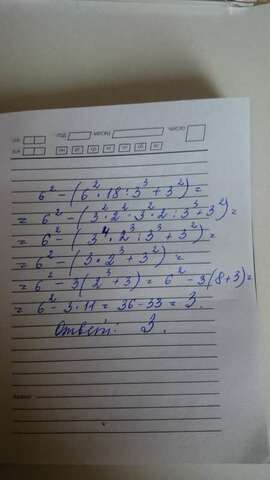 год месяц число
6² - (6² · 18 : 3³ + 3²) =
= 6² - (3² · 2² · 3² · 2 : 3³ + 3²) =
= 6² - (3⁴ · 2³ : 3³ + 3²) =
= 6² - (3 · 2³ + 3²) =
= 6² - 3(2³ + 3) = 6² - 3(8+3) =
= 6² - 3 · 11 = 36 - 33 = 3.
Ответ: 3.